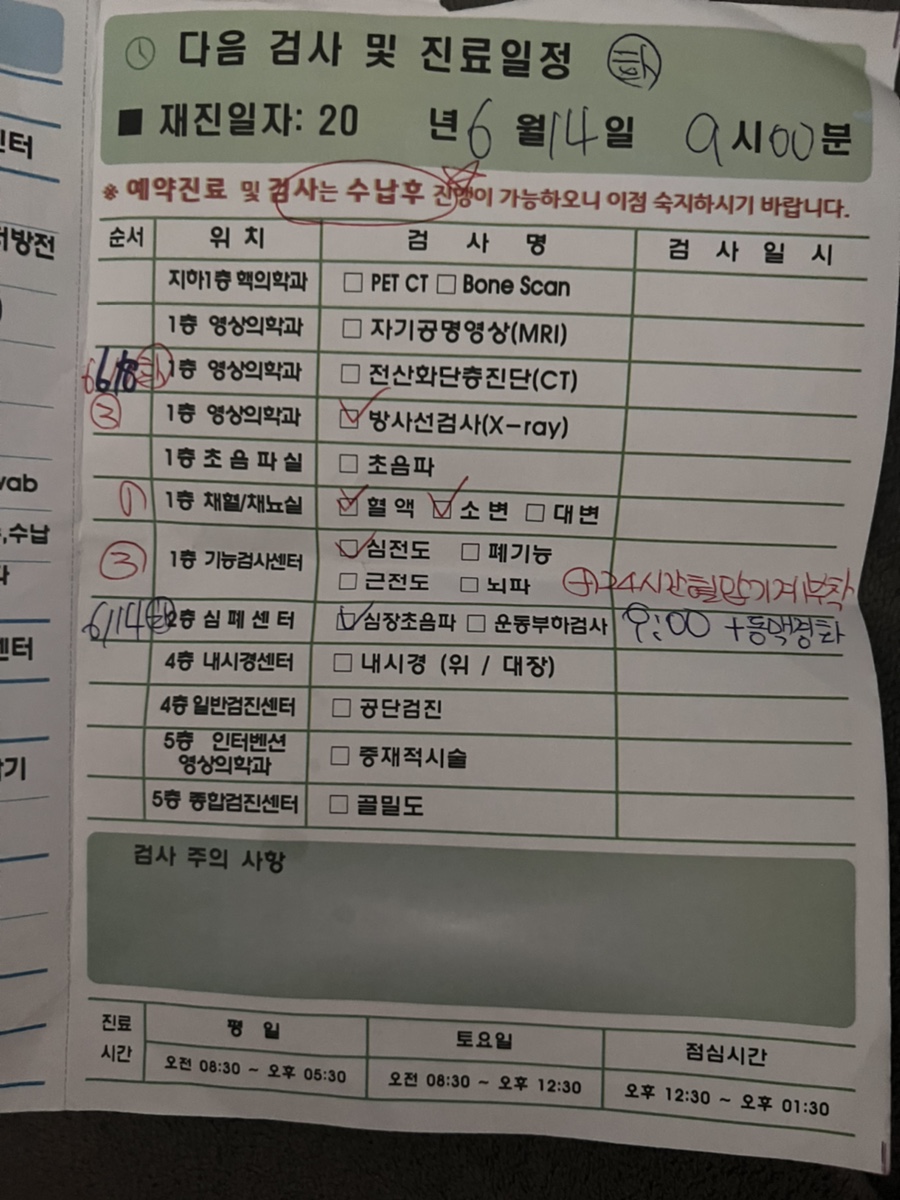 인터
서방전
)
vab
,수납
라
센터
기
다음 검사 및 진료일정
■ 재진일자: 20 년 6 월 14 일 9 시 00 분
※ 예약진료 및 검사는 수납후 진행이 가능하오니 이점 숙지하시기 바랍니다.
순서 위 치 검 사 명 검 사 일 시
지하1층 핵의학과 □ PET CT □ Bone Scan
1층 영상의학과 □ 자기공명영상(MRI)
1층 영상의학과 □ 전산화단층진단(CT)
② 1층 영상의학과 ☑ 방사선검사(X-ray)
1층 초 음 파 실 □ 초음파
① 1층 채혈/채뇨실 ☑ 혈 액 ☑ 소 변 □ 대 변
③ 1층 기능검사센터 ☑ 심전도 □ 폐기능
□ 근전도 □ 뇌파 24시간혈압기계부착
6/14 2층 심 폐 센 터 ☑ 심장초음파 □ 운동부하검사 9:00 +동맥경화
4층 내시경센터 □ 내시경 (위 / 대장)
4층 일반검진센터 □ 공단검진
5층 인터벤션
영상의학과 □ 중재적시술
5층 종합검진센터 □ 골밀도
검사 주의 사항
진료
시간
평 일 토요일 점심시간
오전 08:30 ~ 오후 05:30 오전 08:30 ~ 오후 12:30 오후 12:30 ~ 오후 01:30